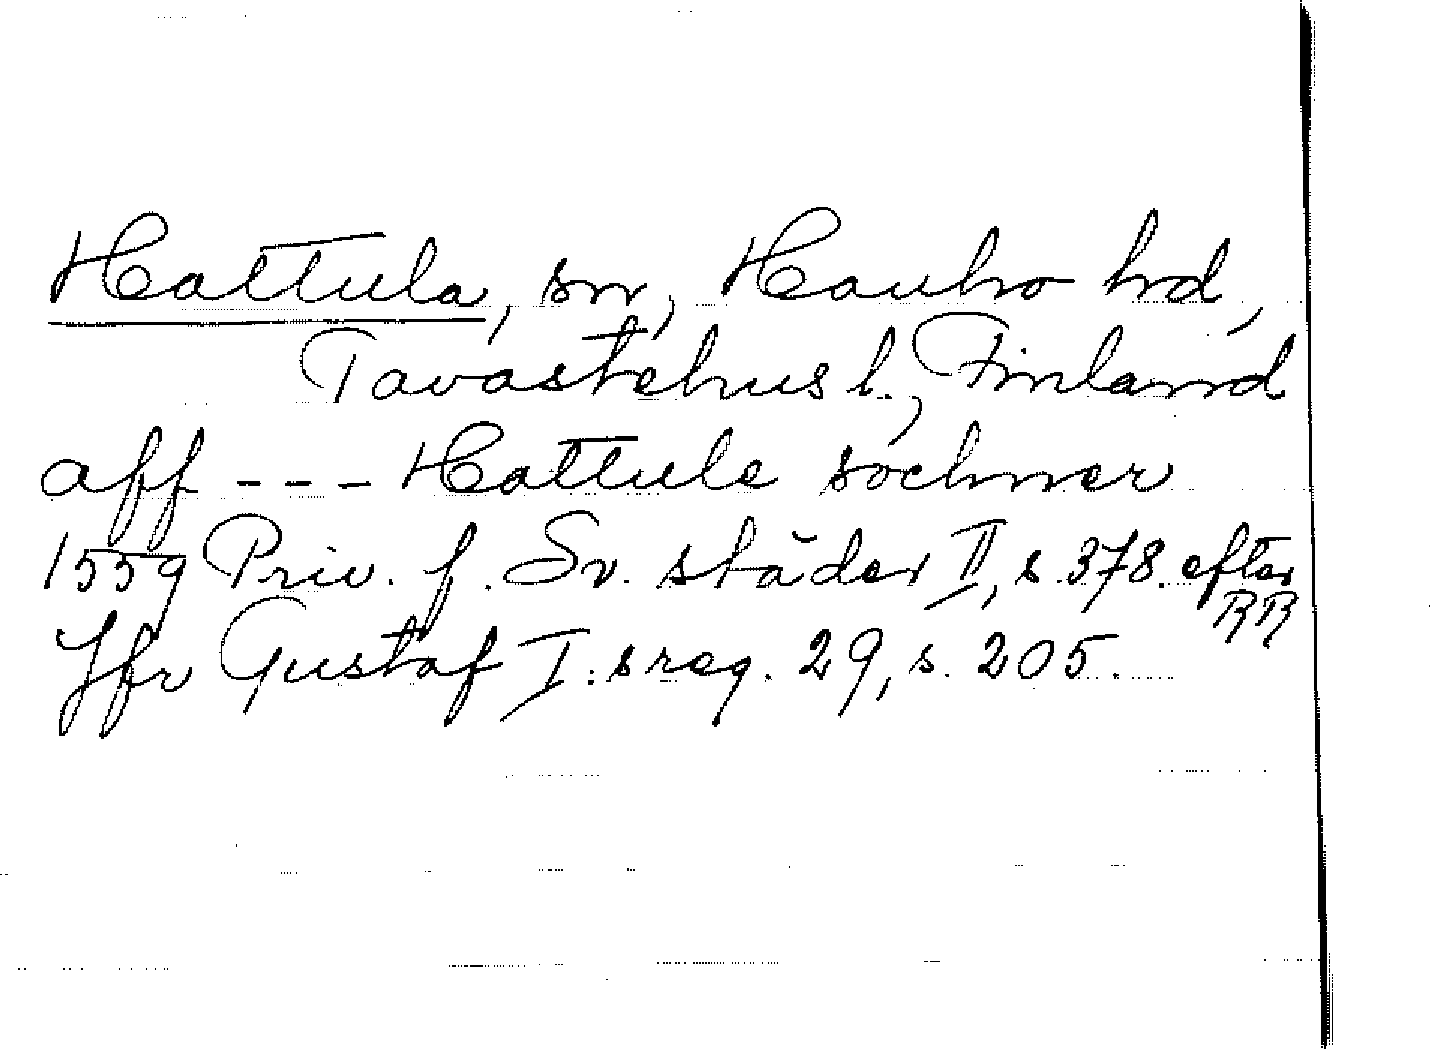 Hattula, sn, Hauho hd,
Tavastehus l., Finland
aff --- Hattule sochner
1559 Priv. f. Sv. städer II, s. 378. efter
RR
Jfr Gustaf I:s reg. 29, s. 205.